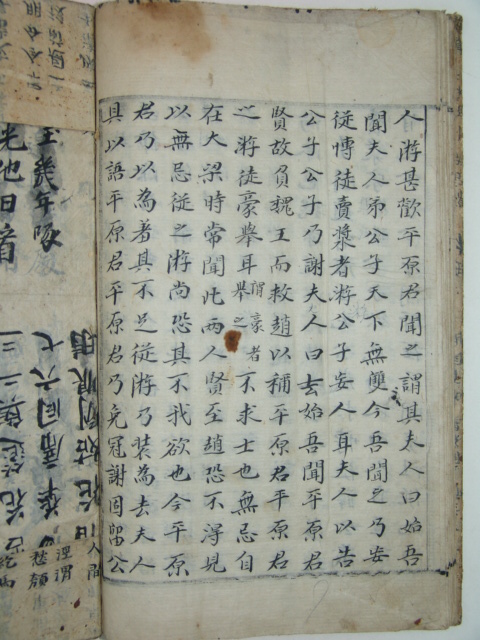 人游甚歡平原君聞之謂其夫人曰始吾
聞夫人弟公子天下無雙今吾聞之乃妄
從愽徒賣漿者游公子妄人耳夫人以告
公子公子乃謝夫人曰去始吾聞平原君
賢故負魏王而救趙以稱平原君平原君
之游徒豪舉耳謂豪者舉之不求士也無忌自
在大梁時常聞此兩人賢至趙恐不得見
以無忌從之游尚恐其不我欲也今平原
君乃以為羞其不足從游乃装為去夫人
具以語平原君平原君乃免冠謝固留公
人間
涇渭
愁顔